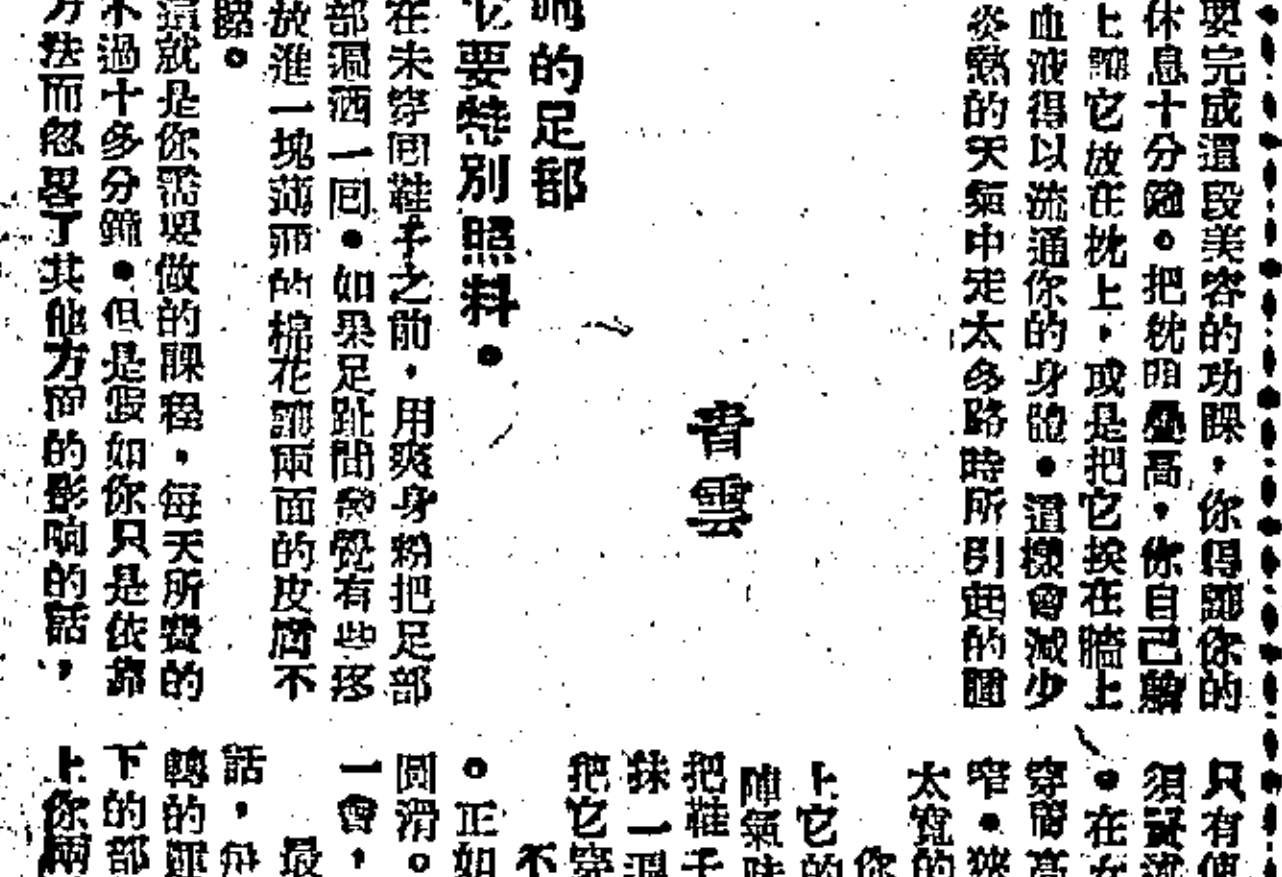 要完成這段美容的功課，你得讓你的
休息十分鐘。把枕頭疊高，你自己躺
上讓它放在枕上，或是把它挨在牆上
血液得以流通你的身體。這樣會減少
炎熱的天氣中走太多路時所引起的
青雲
的足部
它要特別照料。
在未穿回鞋子之前，用爽身粉把足部
部洒一回。如果足趾間覺有些痒
放進一塊薄薄的棉花讓兩面的皮膚不
這就是你需要做的課程，每天所費的
不過十多分鐘。但是假如你只是依靠
方法而忽畧了其他方面的影响的話，
只有
須
。在女
穿高
窄。狹
太寬的
你
上它的
陣氣味
把鞋子
抹一
把它穿
不
。正如
圓滑。
一會，
最
話，每
轉的運
下的部
上你兩